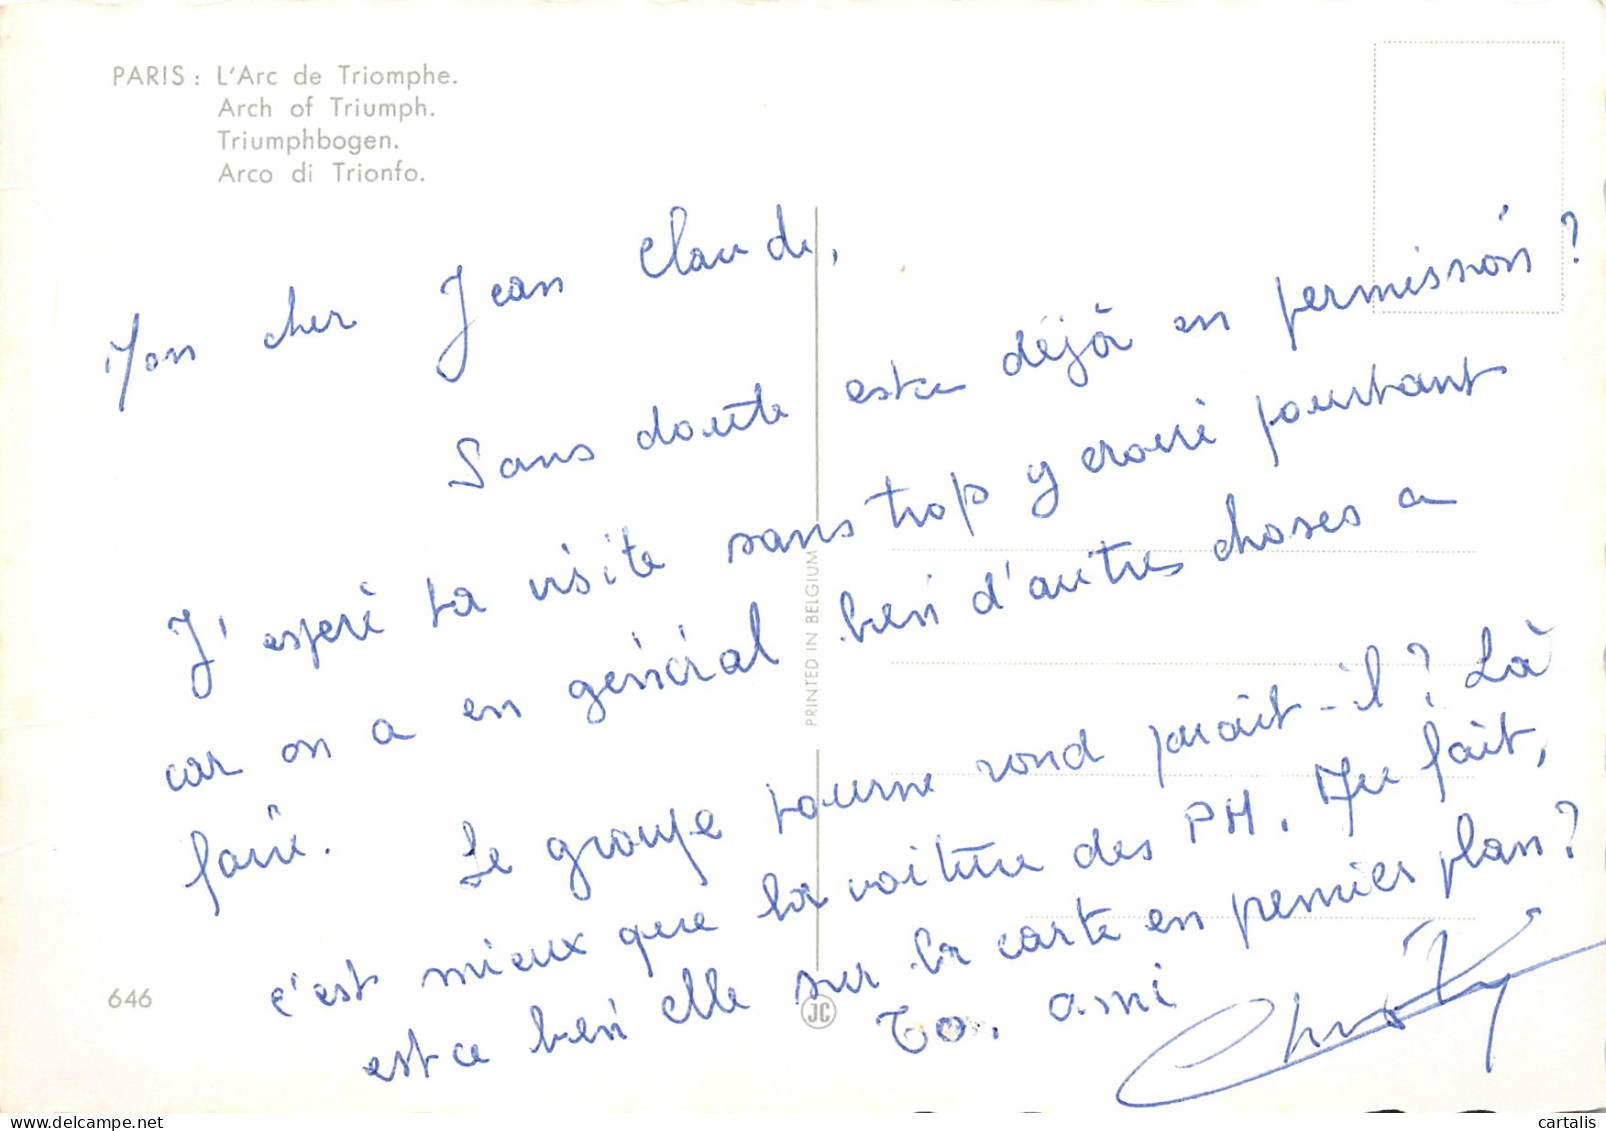 PARIS : L'Arc de Triomphe.
Arch of Triumph.
Triumphbogen.
Arco di Trionfo.
Mon cher Jean Claude,
Sans doute est ce déjà en permission ?
J'espère ta visite sans trop y croire pourtant
car on a en général bien d'autres choses a
faire. Le groupe tourne rond paraît-il ? Là
c'est mieux que la voiture des PH. Au fait,
est ce bien elle sur la carte en premier plan ?
Ton ami
Christy
PRINTED IN BELGIUM
646
JC
cartalis